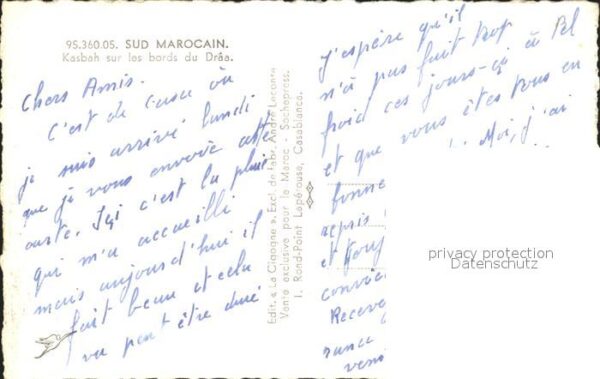 95.360.05. SUD MAROCAIN.
Kasbah sur les bords du Drâa.
Chers Amis.
C'est de Casa où
je suis arrivé lundi
que je vous envoie cette
carte. Ici c'est la pluie
qui m'a accueilli
mais aujourd'hui il
fait beau et cela
va peut être duré
Edit. « La Cigogne », Excl. de Fabr. André Leconte
Vente exclusive pour le Maroc - Sochepress.
1. Rond-Point Lapérouse, Casablanca.
J'espère qu'il
n'a pas fait trop
froid ces jours-ci à Bel
et que vous êtes tous en
Moi, j'ai
bonne
repris
et
convic
Receve
rance
privacy protection
Datenschutz